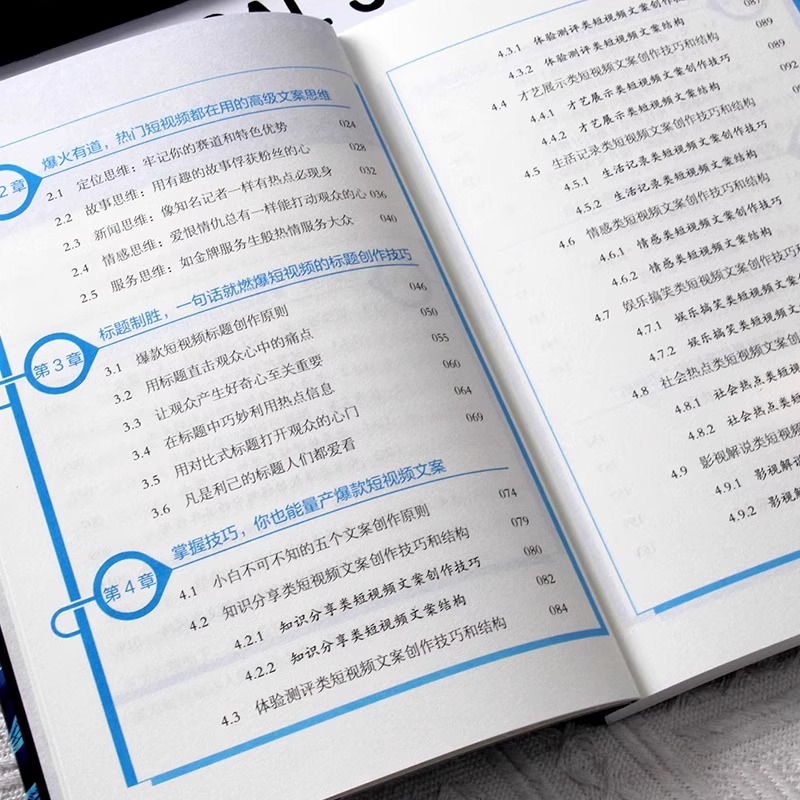 2章
爆火有道，热门短视频都在用的高级文案思维
2.1 定位思维：牢记你的赛道和特色优势 024
2.2 故事思维：用有趣的故事俘获粉丝的心 028
2.3 新闻思维：像知名记者一样有热点必现身 032
2.4 情感思维：爱恨情仇总有一样能打动观众的心 036
2.5 服务思维：如金牌服务生般热情服务大众 040
第3章
标题制胜，一句话就燃爆短视频的标题创作技巧
3.1 爆款短视频标题创作原则 046
3.2 用标题直击观众心中的痛点 050
3.3 让观众产生好奇心至关重要 055
3.4 在标题中巧妙利用热点信息 060
3.5 用对比式标题打开观众的心门 064
3.6 凡是利己的标题人们都爱看 069
第4章
掌握技巧，你也能量产爆款短视频文案
4.1 小白不可不知的五个文案创作原则 074
4.2 知识分享类短视频文案创作技巧和结构 079
4.2.1 知识分享类短视频文案创作技巧 080
4.2.2 知识分享类短视频文案结构 082
4.3 体验测评类短视频文案创作技巧和结构 084
4.3.1 体验测评类短视频文案创作技
4.3.2 体验测评类短视频文案结构 087
4.4 才艺展示类短视频文案创作技巧和结构 089
4.4.1 才艺展示类短视频文案创作技巧 089
4.4.2 才艺展示类短视频文案结构 092
4.5 生活记录类短视频文案创作技巧和结构
4.5.1 生活记录类短视频文案创作技巧
4.5.2 生活记录类短视频文案结构
4.6 情感类短视频文案创作技巧和结构
4.6.1 情感类短视频文案创作技巧
4.6.2 情感类短视频文案结构
4.7 娱乐搞笑类短视频文案创作技巧
4.7.1 娱乐搞笑类短视频文案创
4.7.2 娱乐搞笑类短视频文案结
4.8 社会热点类短视频文案创
4.8.1 社会热点类短视频文
4.8.2 社会热点类短视频
4.9 影视解说类短视频
4.9.1 影视解说
4.9.2 影视解